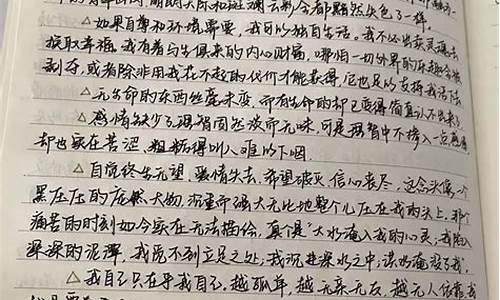 △如果自尊和环境需要,我可以独自生活。我不必出卖灵魂去
换取幸福。我有着与生俱来的内心财富,哪怕一切外界的乐趣全被
剥夺,或者除非用我付不起的代价才能获得,它也足以支持我活下去
△无生命的东西丝毫未变,而有生命的却已变得简直认不出来了
△感情缺少了理智固然淡而无味,可是理智中不掺入一点感情
却也实在苦涩、粗糙得叫人难以下咽
△自觉终生无望,爱情失去,希望破灭,信心丧尽,这念头像一个
黑压压的庞然大物,沉重而强大无比地整个儿压在我的头上,那个
痛苦的时刻如今实在无法描绘,真个是“大水淹入我的心灵,我陷入
深深的泥潭,我觉不到立足之处;我沉进深水之中;洪水淹没了我”
△我自己只在乎我自己,越孤单,越无亲无友,越无人依靠